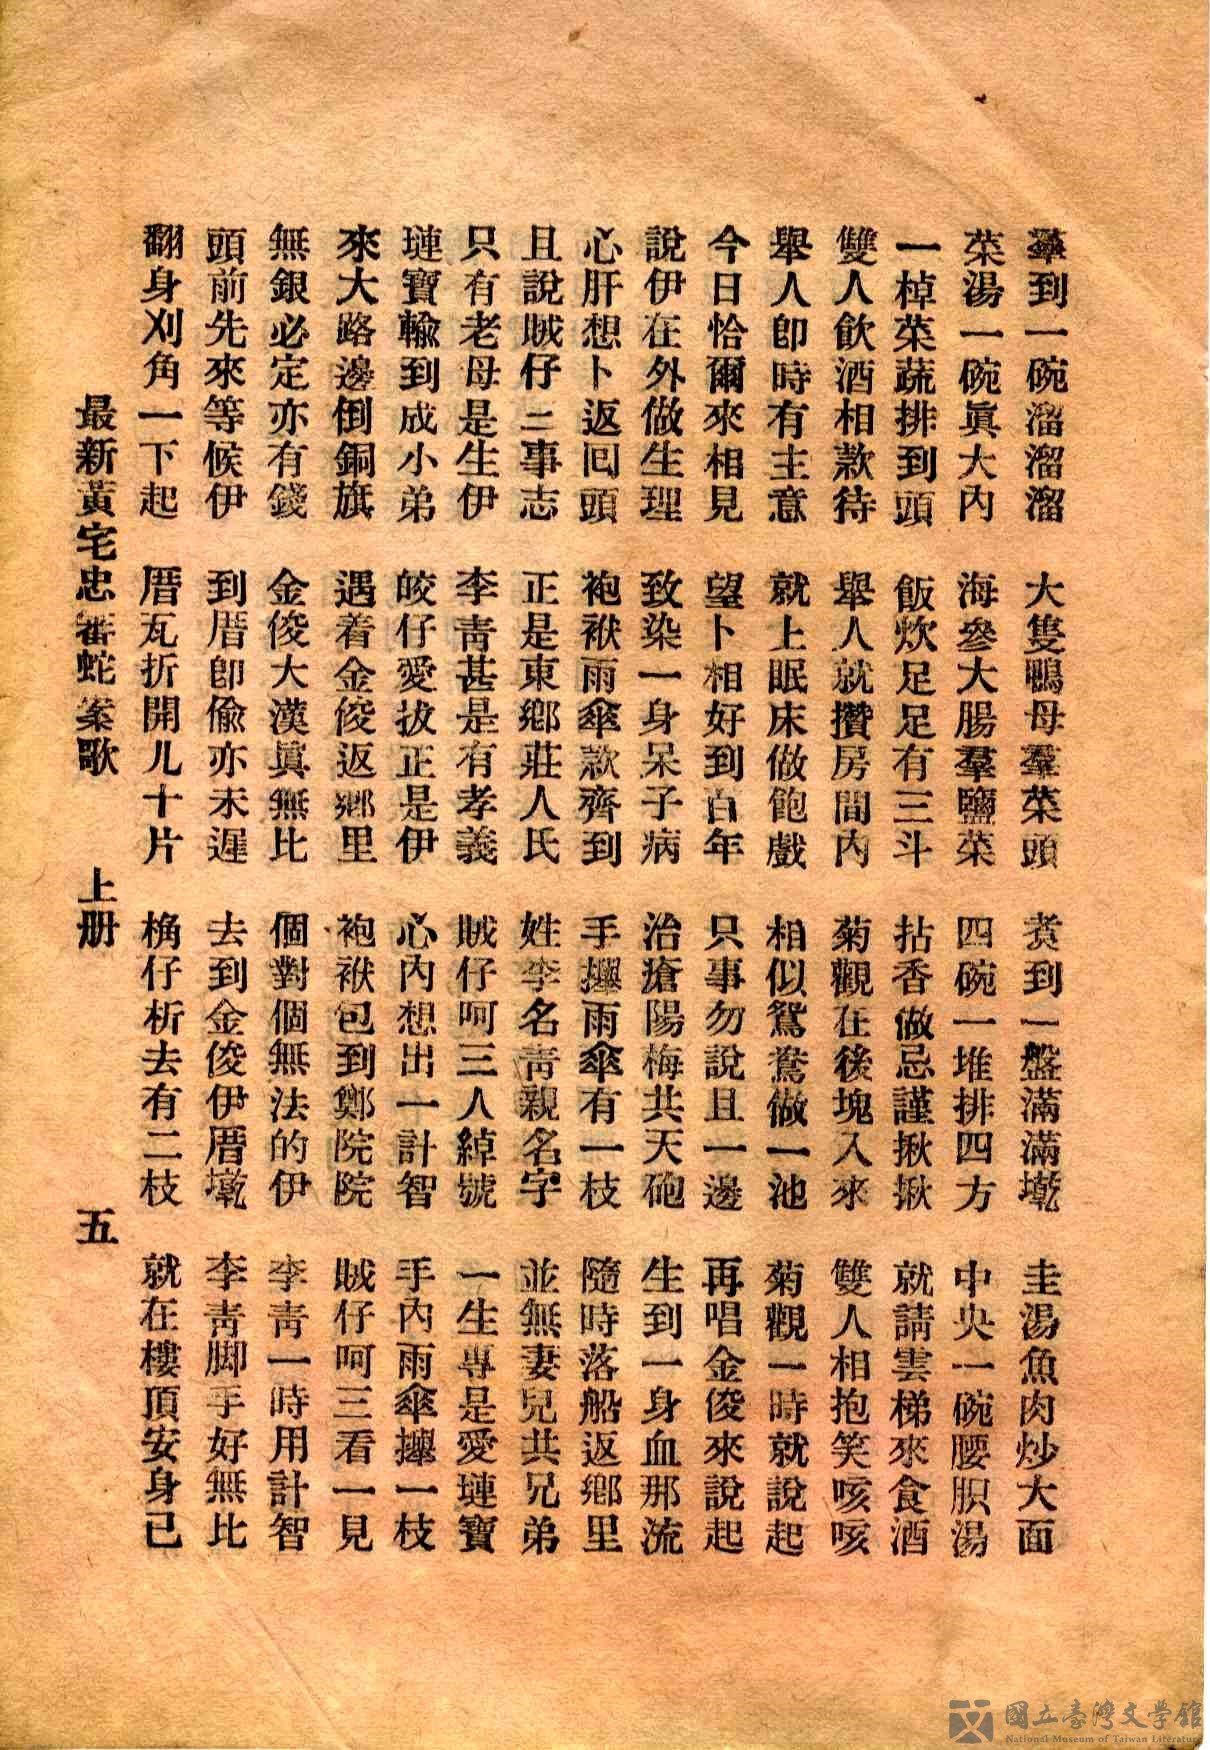 羣到一碗溜溜溜 大隻鴨母羣菜頭 煑到一盤滿滿墘 圭湯魚肉炒大面
菜湯一碗眞大內 海參大腸羣鹽菜 四碗一堆排四方 中央一碗腰脤湯
一棹菜蔬排到頭 飯炊足足有三斗 拈香做忌謹揪揪 就請雲梯來食酒
雙人飲酒相欵待 舉人就攢房間內 菊觀在後塊入來 雙人相抱笑咳咳
舉人卽時有主意 就上眠床做飽戲 相似鴛鴦做一池 菊觀一時就說起
今日恰爾來相見 望卜相好到百年 只事勿說且一邊 再唱金俊來說起
說伊在外做生理 致染一身呆子病 治瘡陽梅共天砲 生到一身血那流
心肝想卜返囘頭 袍袱雨傘欵齊到 手攑雨傘有一枝 隨時落船返鄕里
且說賊仔三事志 正是東鄕莊人氏 姓李名靑親名字 並無妻兒共兄弟
只有老母是生伊 李靑甚是有孝義 賊仔呵三人綽號 一生專是愛璉寶
璉寶輸到成小弟 皎仔愛拔正是伊 心內想出一計智 手內雨傘攑一枝
來大路邊倒銅旗 遇着金俊返鄕里 袍袱包到鄭院院 賊仔呵三看一見
無銀必定亦有錢 金俊大漢眞無比 個對個無法的伊 李靑一時用計智
頭前先來等候伊 到厝卽偸亦未遲 去到金俊伊厝墘 李靑脚手好無比
翻身刈角一下起 厝瓦折開儿十片 桷仔析去有二枝 就在樓頂安身己
最新黃宅忠審蛇案歌 上册 五
國立臺灣文學館
National Museum of Taiwan Literature